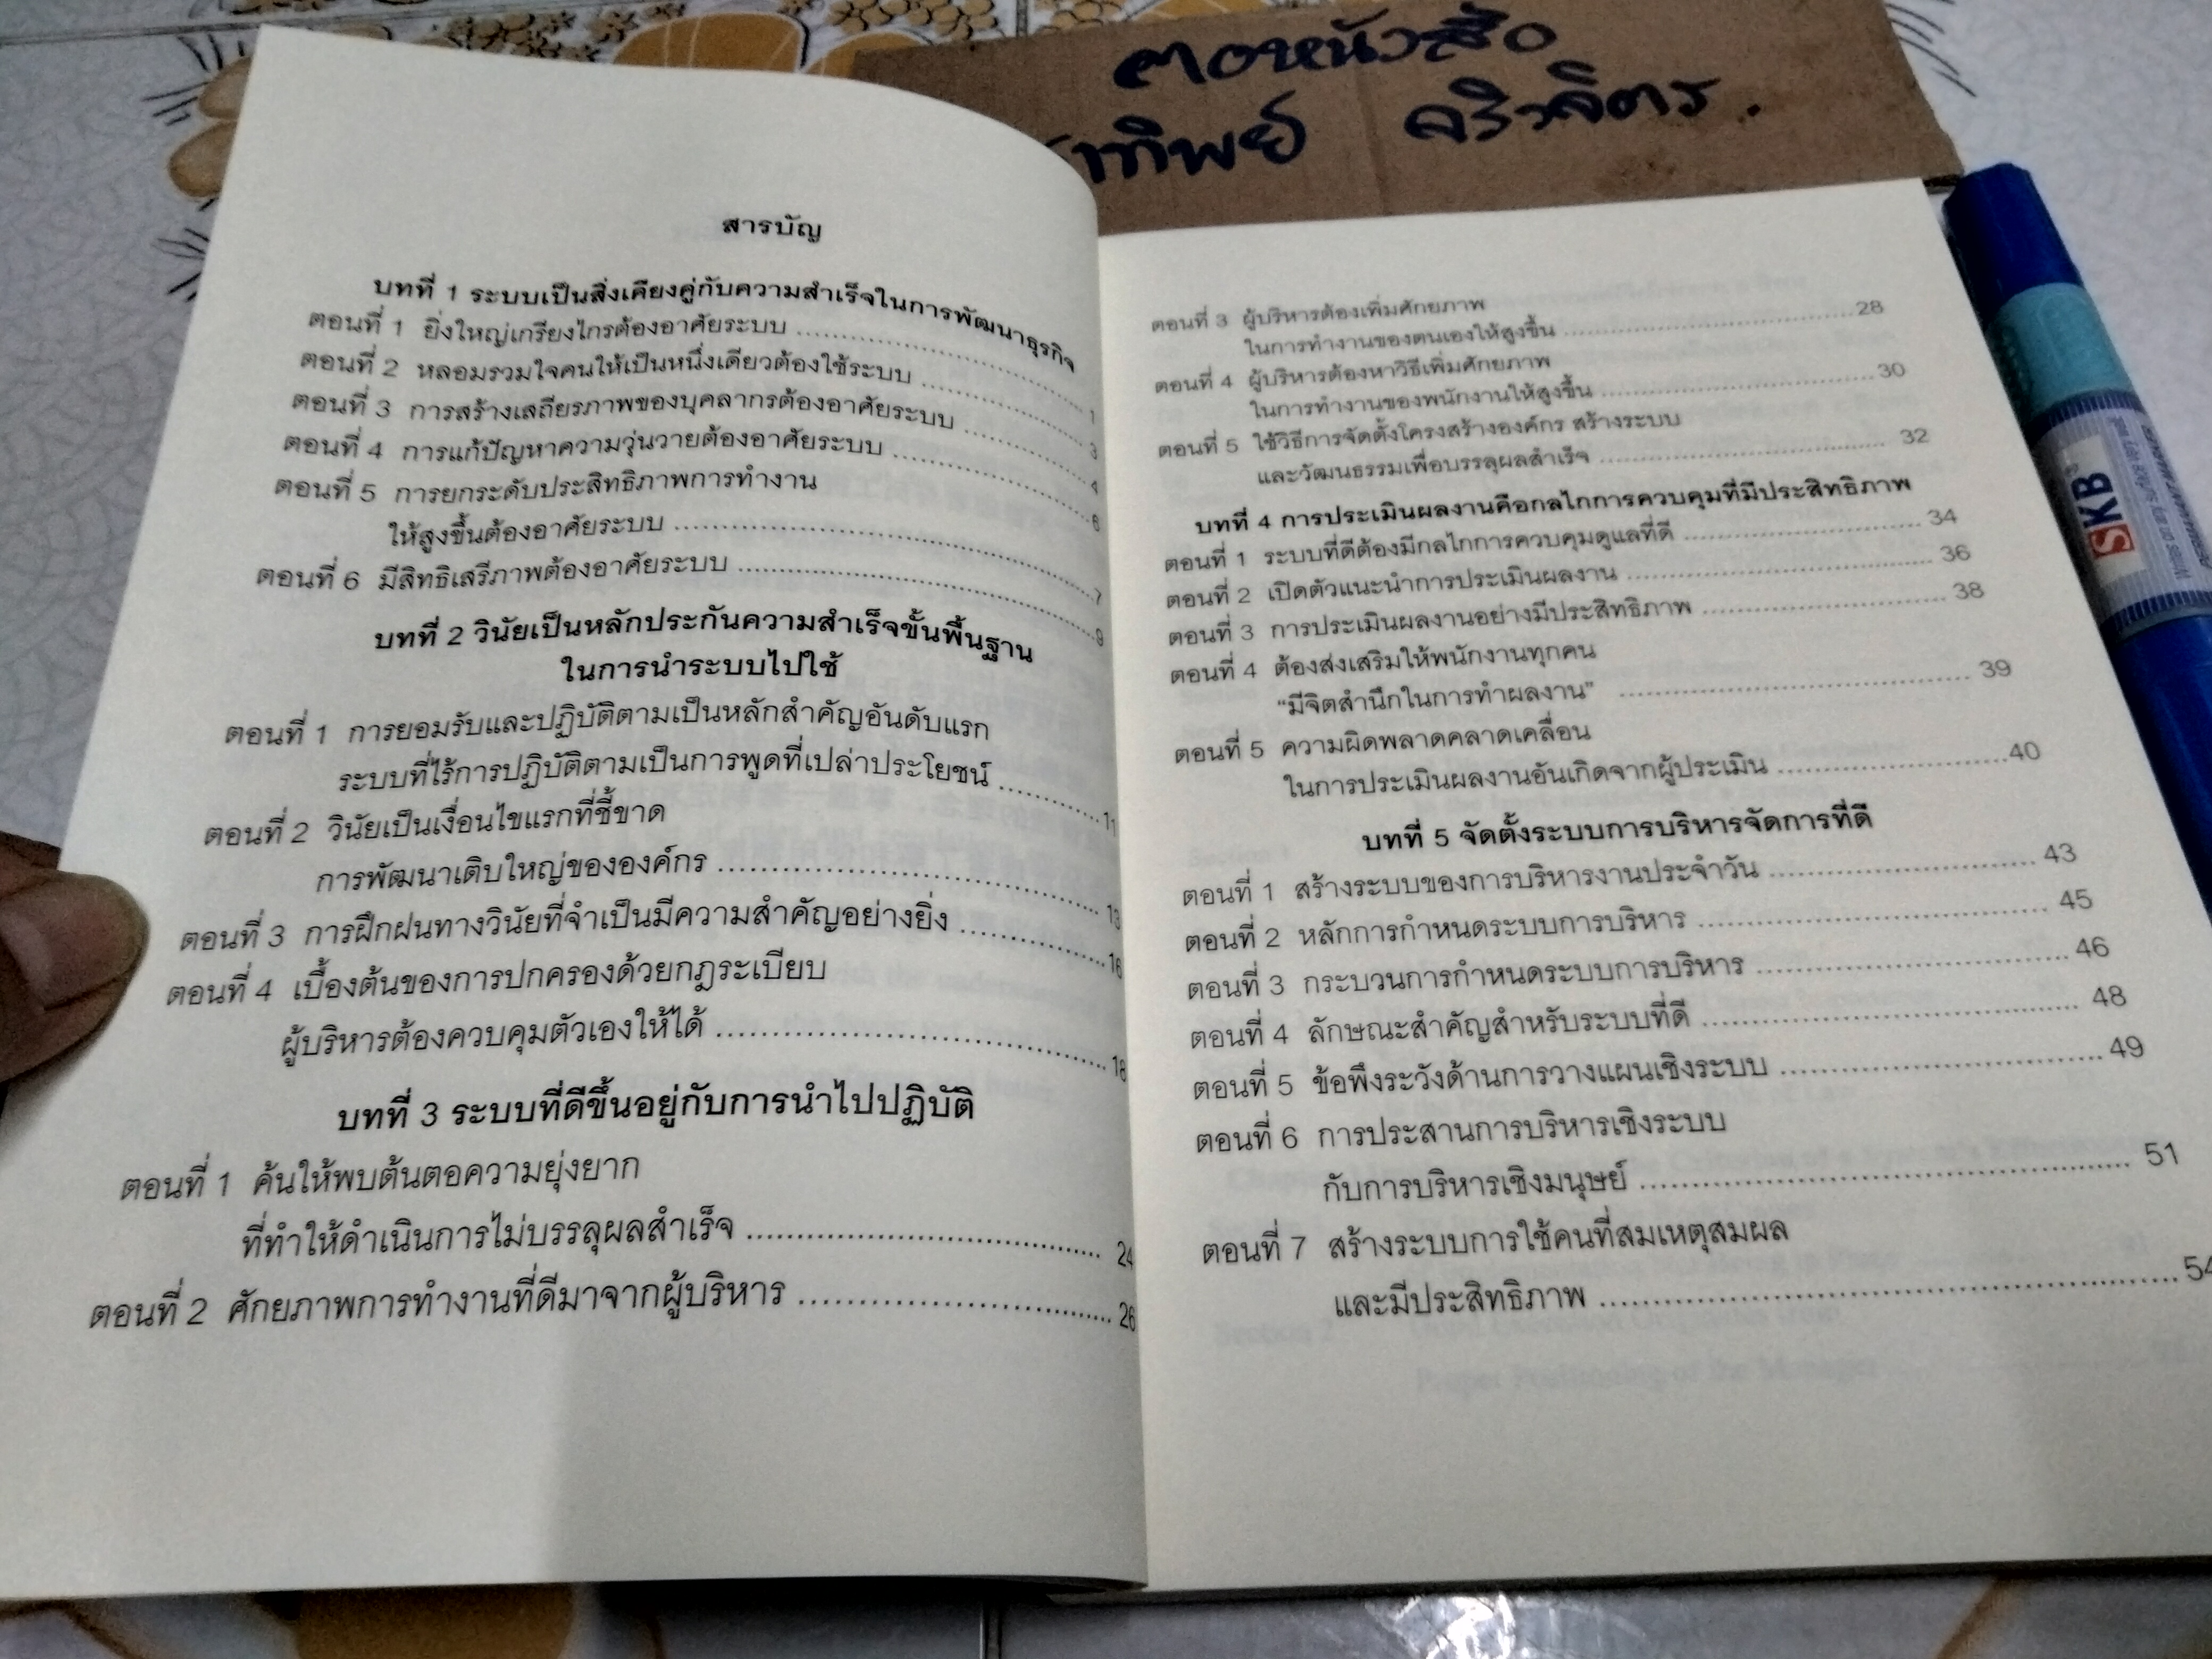 สารบัญ
บทที่ 1 ระบบเป็นสิ่งเคียงคู่กับความสำเร็จในการพัฒนาธุรกิจ
ตอนที่ 1 ยิ่งใหญ่เกรียงไกรต้องอาศัยระบบ ........ 1
ตอนที่ 2 หลอมรวมใจคนให้เป็นหนึ่งเดียวต้องใช้ระบบ ........ 3
ตอนที่ 3 การสร้างเสถียรภาพของบุคลากรต้องอาศัยระบบ ........ 4
ตอนที่ 4 การแก้ปัญหาความวุ่นวายต้องอาศัยระบบ ........ 6
ตอนที่ 5 การยกระดับประสิทธิภาพการทำงาน
ให้สูงขึ้นต้องอาศัยระบบ ........ 7
ตอนที่ 6 มีสิทธิเสรีภาพต้องอาศัยระบบ ........ 9
บทที่ 2 วินัยเป็นหลักประกันความสำเร็จขั้นพื้นฐาน
ในการนำระบบไปใช้
ตอนที่ 1 การยอมรับและปฏิบัติตามเป็นหลักสำคัญอันดับแรก
ระบบที่ไร้การปฏิบัติตามเป็นการพูดที่เปล่าประโยชน์ ........ 11
ตอนที่ 2 วินัยเป็นเงื่อนไขแรกที่ชี้ขาด
การพัฒนาเติบใหญ่ขององค์กร ........ 13
ตอนที่ 3 การฝึกฝนทางวินัยที่จำเป็นมีความสำคัญอย่างยิ่ง ........ 16
ตอนที่ 4 เบื้องต้นของการปกครองด้วยกฎระเบียบ
ผู้บริหารต้องควบคุมตัวเองให้ได้ ........ 18
บทที่ 3 ระบบที่ดีขึ้นอยู่กับการนำไปปฏิบัติ
ตอนที่ 1 ค้นให้พบต้นตอความยุ่งยาก
ที่ทำให้ดำเนินการไม่บรรลุผลสำเร็จ ........ 24
ตอนที่ 2 ศักยภาพการทำงานที่ดีมาจากผู้บริหาร ........ 26
ตอนที่ 3 ผู้บริหารต้องเพิ่มศักยภาพ
ในการทำงานของตนเองให้สูงขึ้น ........ 28
ตอนที่ 4 ผู้บริหารต้องหาวิธีเพิ่มศักยภาพ
ในการทำงานของพนักงานให้สูงขึ้น ........ 30
ตอนที่ 5 ใช้วิธีการจัดตั้งโครงสร้างองค์กร สร้างระบบ
และวัฒนธรรมเพื่อบรรลุผลสำเร็จ ........ 32
บทที่ 4 การประเมินผลงานคือกลไกการควบคุมที่มีประสิทธิภาพ
ตอนที่ 1 ระบบที่ดีต้องมีกลไกการควบคุมดูแลที่ดี ........ 34
ตอนที่ 2 เปิดตัวแนะนำการประเมินผลงาน ........ 36
ตอนที่ 3 การประเมินผลงานอย่างมีประสิทธิภาพ ........ 38
ตอนที่ 4 ต้องส่งเสริมให้พนักงานทุกคน
“มีจิตสำนึกในการทำผลงาน” ........ 39
ตอนที่ 5 ความผิดพลาดคลาดเคลื่อน
ในการประเมินผลงานอันเกิดจากผู้ประเมิน ........ 40
บทที่ 5 จัดตั้งระบบการบริหารจัดการที่ดี
ตอนที่ 1 สร้างระบบของการบริหารงานประจำวัน ........ 43
ตอนที่ 2 หลักการกำหนดระบบการบริหาร ........ 45
ตอนที่ 3 กระบวนการกำหนดระบบการบริหาร ........ 46
ตอนที่ 4 ลักษณะสำคัญสำหรับระบบที่ดี ........ 48
ตอนที่ 5 ข้อพึงระวังด้านการวางแผนเชิงระบบ ........ 49
ตอนที่ 6 การประสานการบริหารเชิงระบบ
กับการบริหารเชิงมนุษย์ ........ 51
ตอนที่ 7 สร้างระบบการใช้คนที่สมเหตุสมผล
และมีประสิทธิภาพ ........ 54
SKB